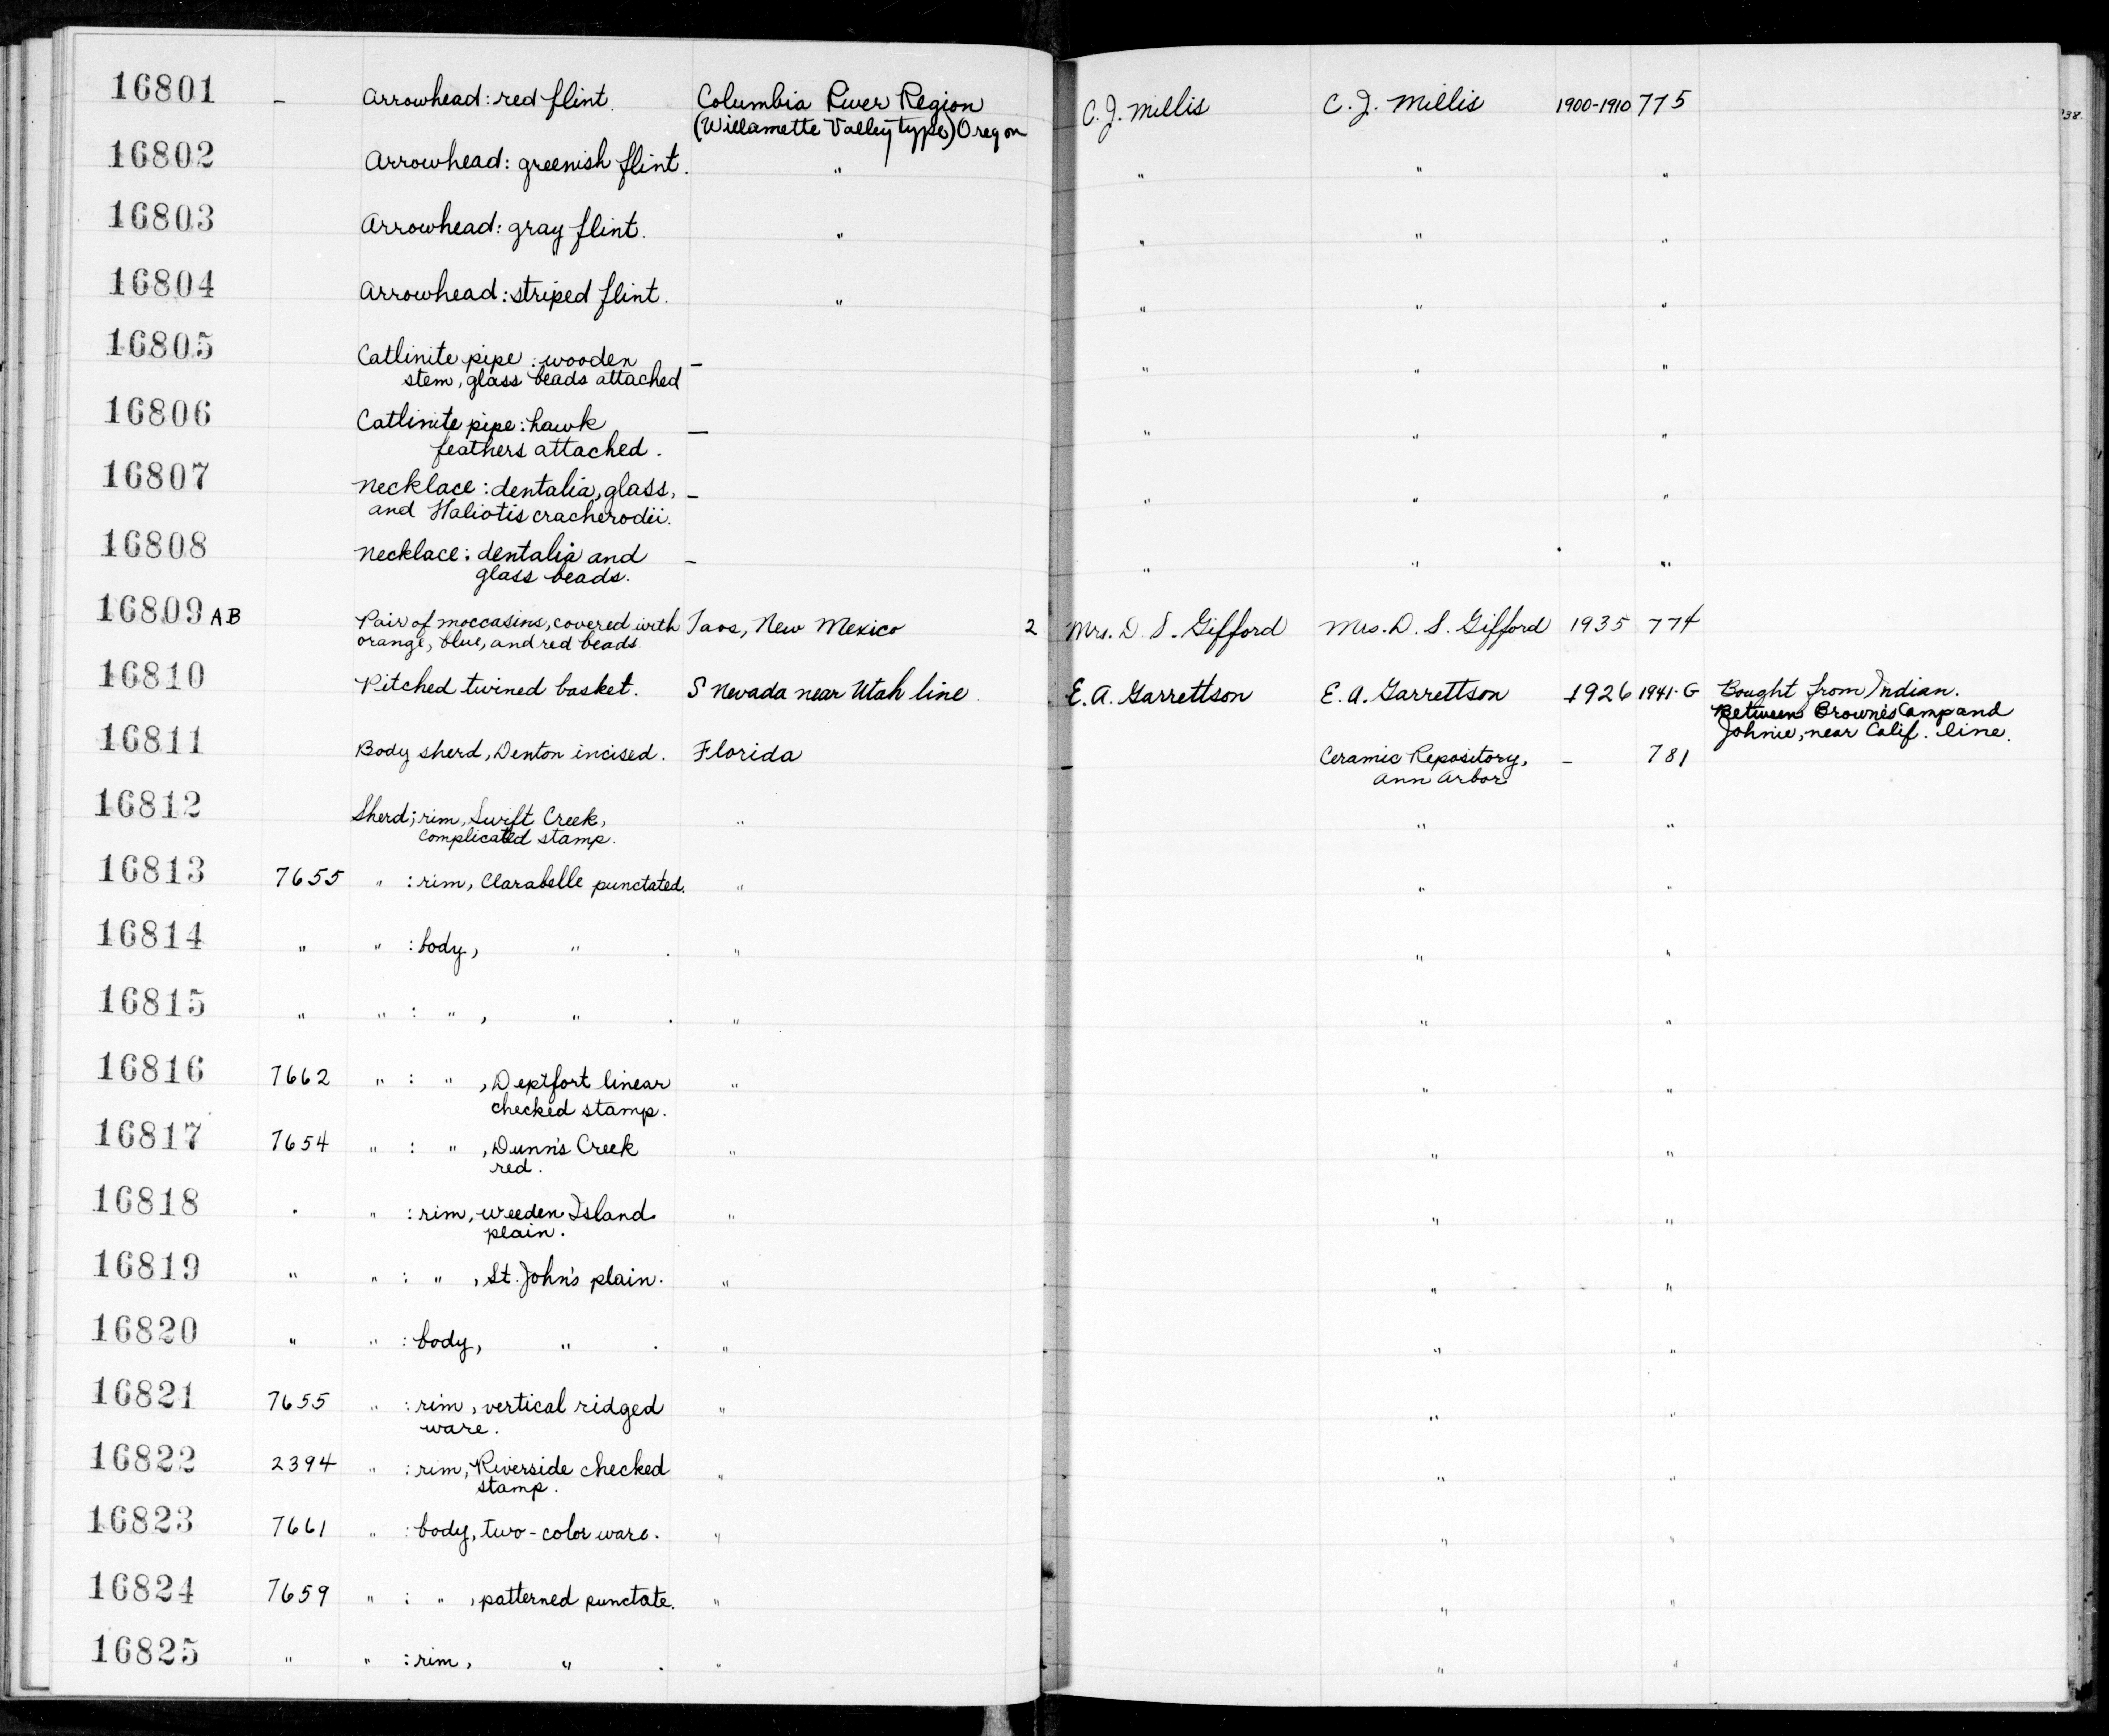 16801 – Arrowhead: red flint. Columbia River Region C. J. Millis C. J. Millis 1900-1910 775
(Willamette Valley type) Oregon
16802 Arrowhead: greenish flint. " " " "
16803 Arrowhead: gray flint. " " " "
16804 Arrowhead: striped flint. " " " "
16805 Catlinite pipe: wooden – " " "
stem, glass beads attached
16806 Catlinite pipe: hawk – " " "
feathers attached.
16807 Necklace: dentalia, glass, – " " "
and Haliotis cracherodii.
16808 Necklace: dentalia and – " " "
glass beads.
16809 AB Pair of moccasins, covered with Taos, New Mexico 2 Mrs. D. S. Gifford Mrs. D. S. Gifford 1935 774
orange, blue, and red beads.
16810 Pitched twined basket. S Nevada near Utah line. E. A. Garrettson E. A. Garrettson 1926 1941-G Bought from Indian.
Between Browne's Camp and
Johnie, near Calif. line.
16811 Body sherd, Denton incised. Florida – Ceramic Repository, – 781
Ann Arbor
16812 Sherd; rim, Swift Creek, " " "
complicated stamp.
16813 7655 " : rim, Clarabelle punctated. " " "
16814 " " : body, " . " " "
16815 " " : " , " . " " "
16816 7662 " : " , Deptfort linear " " "
checked stamp.
16817 7654 " : " , Dunn's Creek " " "
red.
16818 " " : rim, Weeden Island " " "
plain.
16819 " " : " , St. John's plain. " " "
16820 " " : body, " . " " "
16821 7655 " : rim, vertical ridged " " "
ware.
16822 2394 " : rim, Riverside checked " " "
stamp.
16823 7661 " : body, two-color ware. " " "
16824 7659 " : " , patterned punctate. " " "
16825 " " : rim, " . " " "